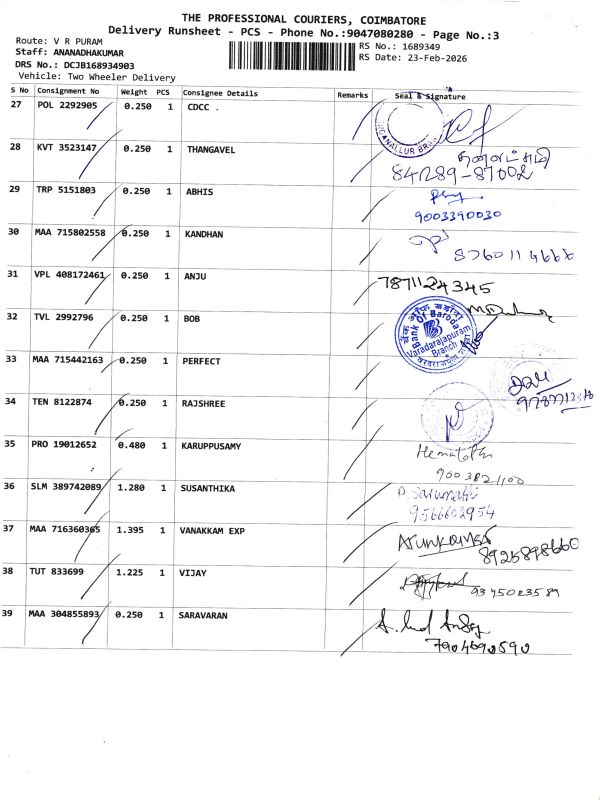 THE PROFESSIONAL COURIERS, COIMBATORE
Delivery Runsheet - PCS - Phone No.:9047080280 - Page No.:3
Route: V R PURAM
Staff: ANANADHAKUMAR
DRS No.: DCJB168934903
Vehicle: Two Wheeler Delivery
RS No.: 1689349
RS Date: 23-Feb-2026
S No Consignment No Weight PCS Consignee Details Remarks Seal & Signature
27 POL 2292905 0.250 1 CDCC .
28 KVT 3523147 0.250 1 THANGAVEL
84289-87002
29 TRP 5151803 0.250 1 ABHIS
9003390030
30 MAA 715802558 0.250 1 KANDHAN
31 VPL 408172461 0.250 1 ANJU 7871124345
32 TVL 2992796 0.250 1 BOB
बैंक ऑफ़ बड़ौदा
Bank Of Baroda
Varadarajapuram
Branch
33 MAA 715442163 0.250 1 PERFECT
34 TEN 8122874 0.250 1 RAJSHREE
35 PRO 19012652 0.480 1 KARUPPUSAMY
9003821100
36 SLM 389742089 1.280 1 SUSANTHIKA
9566602954
37 MAA 716360365 1.395 1 VANAKKAM EXP
8925898660
38 TUT 833699 1.225 1 VIJAY
9345023589
39 MAA 304855893 0.250 1 SARAVARAN
7904690590